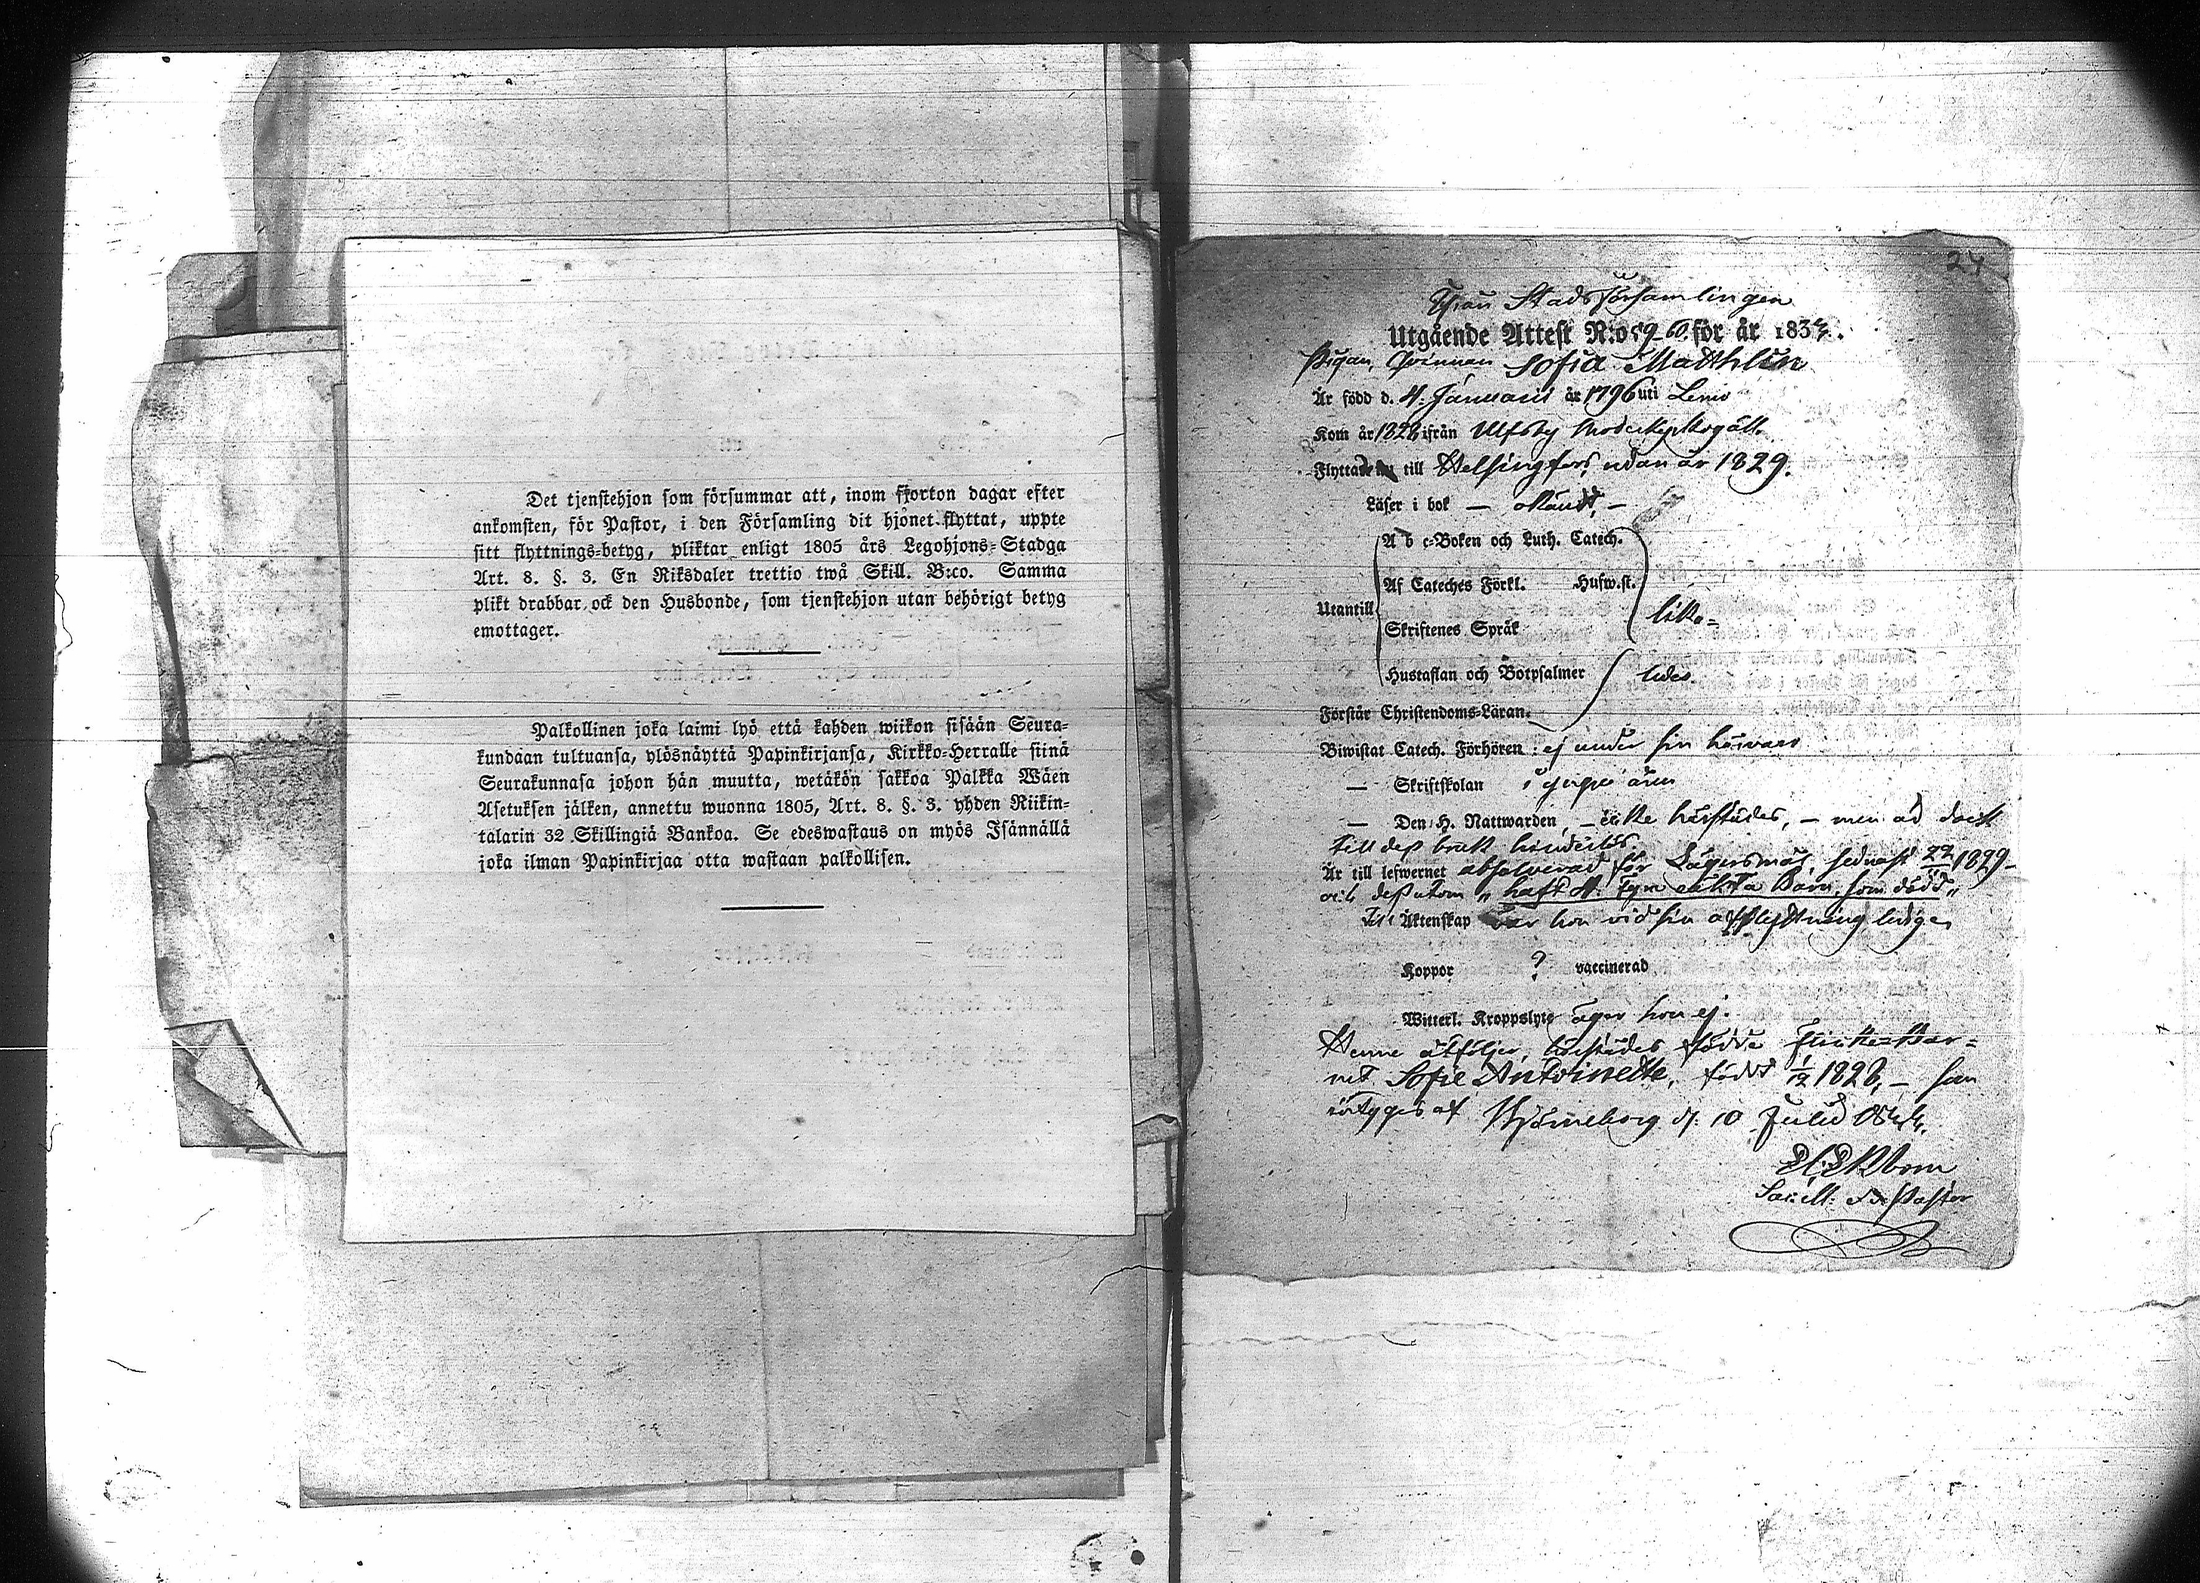 Det tjenstehjon som försummar att, inom fjorton dagar efter
ankomsten, för Pastor, i den Församling dit hjonet flyttat, uppte
sitt flyttnings-betyg, pliktar enligt 1805 års Legohjons-Stadga
Art. 8. §. 3. En Riksdaler trettio twå Skill. B:co. Samma
plikt drabbar ock den Husbonde, som tjenstehjon utan behörigt betyg
emottager.
Palkollinen joka laimi lyö että kahden wiikon sisään Seura-
kundaan tultuansa, ylösnäyttä Papinkirjansa, Kirkko-Herralle siinä
Seurakunnasa johon hän muutta, wetäkön sakkoa Palkka Wäen
Asetuksen jälken, annettu wuonna 1805, Art. 8. §. 3. yhden Riikin-
talarin 32 Skillingiä Bankoa. Se edeswastaus on myös Isännällä
joka ilman Papinkirjaa otta wastaan palkollisen.
24
Från Stadsförsamlingen
Utgående Attest N:o 59_60 för år 1834.
Pigan, Qvinnan Sofia Matthlin
Är född d. 4: Januarii år 1796 uti Lemo
Kom år 1828 ifrån Ulfsby
Flytta till Helsingfors redan år 1829.
Läser i bok —
A b c-Boken och Luth. Catech.
Af Cateches Förkl. Husw.st.
Utantill
Skriftenes Språk lika=
Hustaflan och Botpsalmer
Förstår Christendoms-Läran.
Biwistat Catech. Förhören: ej under sin härvaro
— Skriftskolan i yngre åren
— Den H. Nattwarden, — icke härstädes, — men
till dess bruk
Är till lefwernet absolverad för Lägersmål sednast 1829—
och dessutom „haft 4 oäkta Barn, som dödt„
Till Äktenskap var hon vid sin afflyttning ledig
Koppor ? vaccinerad
Witterl. Kroppslyte äger hon ej.
Henne åtföljer, härstädes födde flicko=Bar=
net Sofie Antoinette, födt 1/12 1828, — som
betygas af Björneborg d. 10 Julii 1834.
Ekbom
Pastor